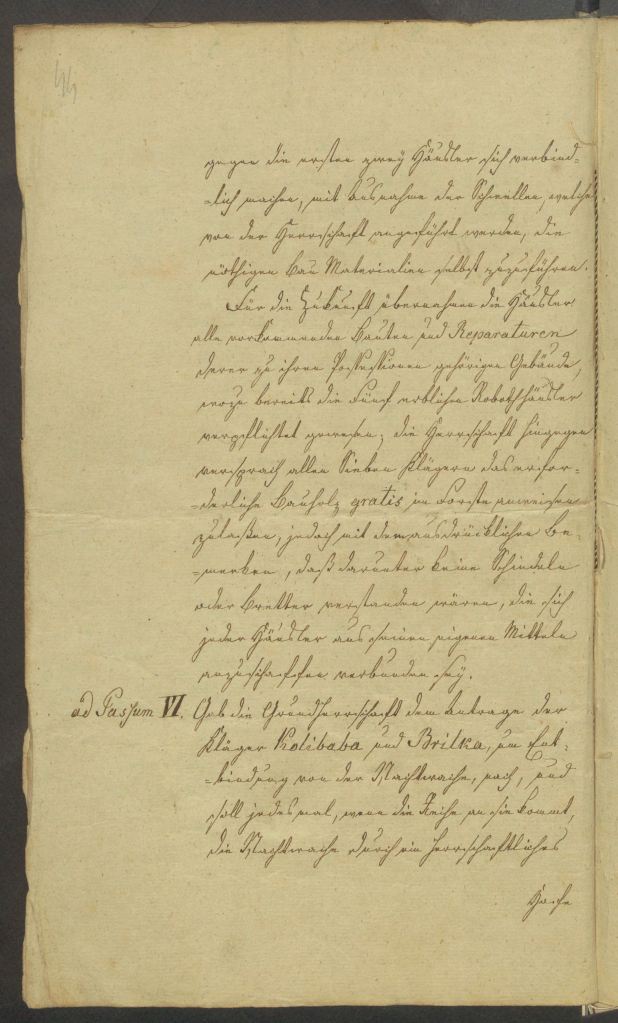 44
gegen die ersten zwey Häusler sich verbind=
=lich machen, mit Ausnahme der Schwellen, welche
von der Herrschaft angeführt werden, die
nöthigen Bau Materialien selbst zuzuführen.
Für die Zukunft übernahmen die Häusler
alle vorkommenden Bauten und Reparaturen
derer zu ihren Possessionen gehörigen Gebäude,
wozu bereits die Fünf erblichen Robothhäusler
verpflichtet gewesen; die Herrschaft hingegen
versprach allen Sieben Klägern das erfor=
=derliche Bauholz gratis im Forste anweisen
zulaßen, jedoch mit dem ausdrücklichen Be=
=merken, daß darunter keine Schindeln
oder Bretter verstanden wären, die sich
jeder Häusler aus seinen eigenen Mitteln
anzuschaffen verbunden sey.
ad Passum VI. Gab die Grundherrschaft dem Antrage der
Kläger Kolibaba und Brilka, um Ent=
=bindung von der Nachtwache, nach, und
soll jedesmal, wenn die Reihe an sie kommt,
die Nachtwache durch ein herrschaftliches